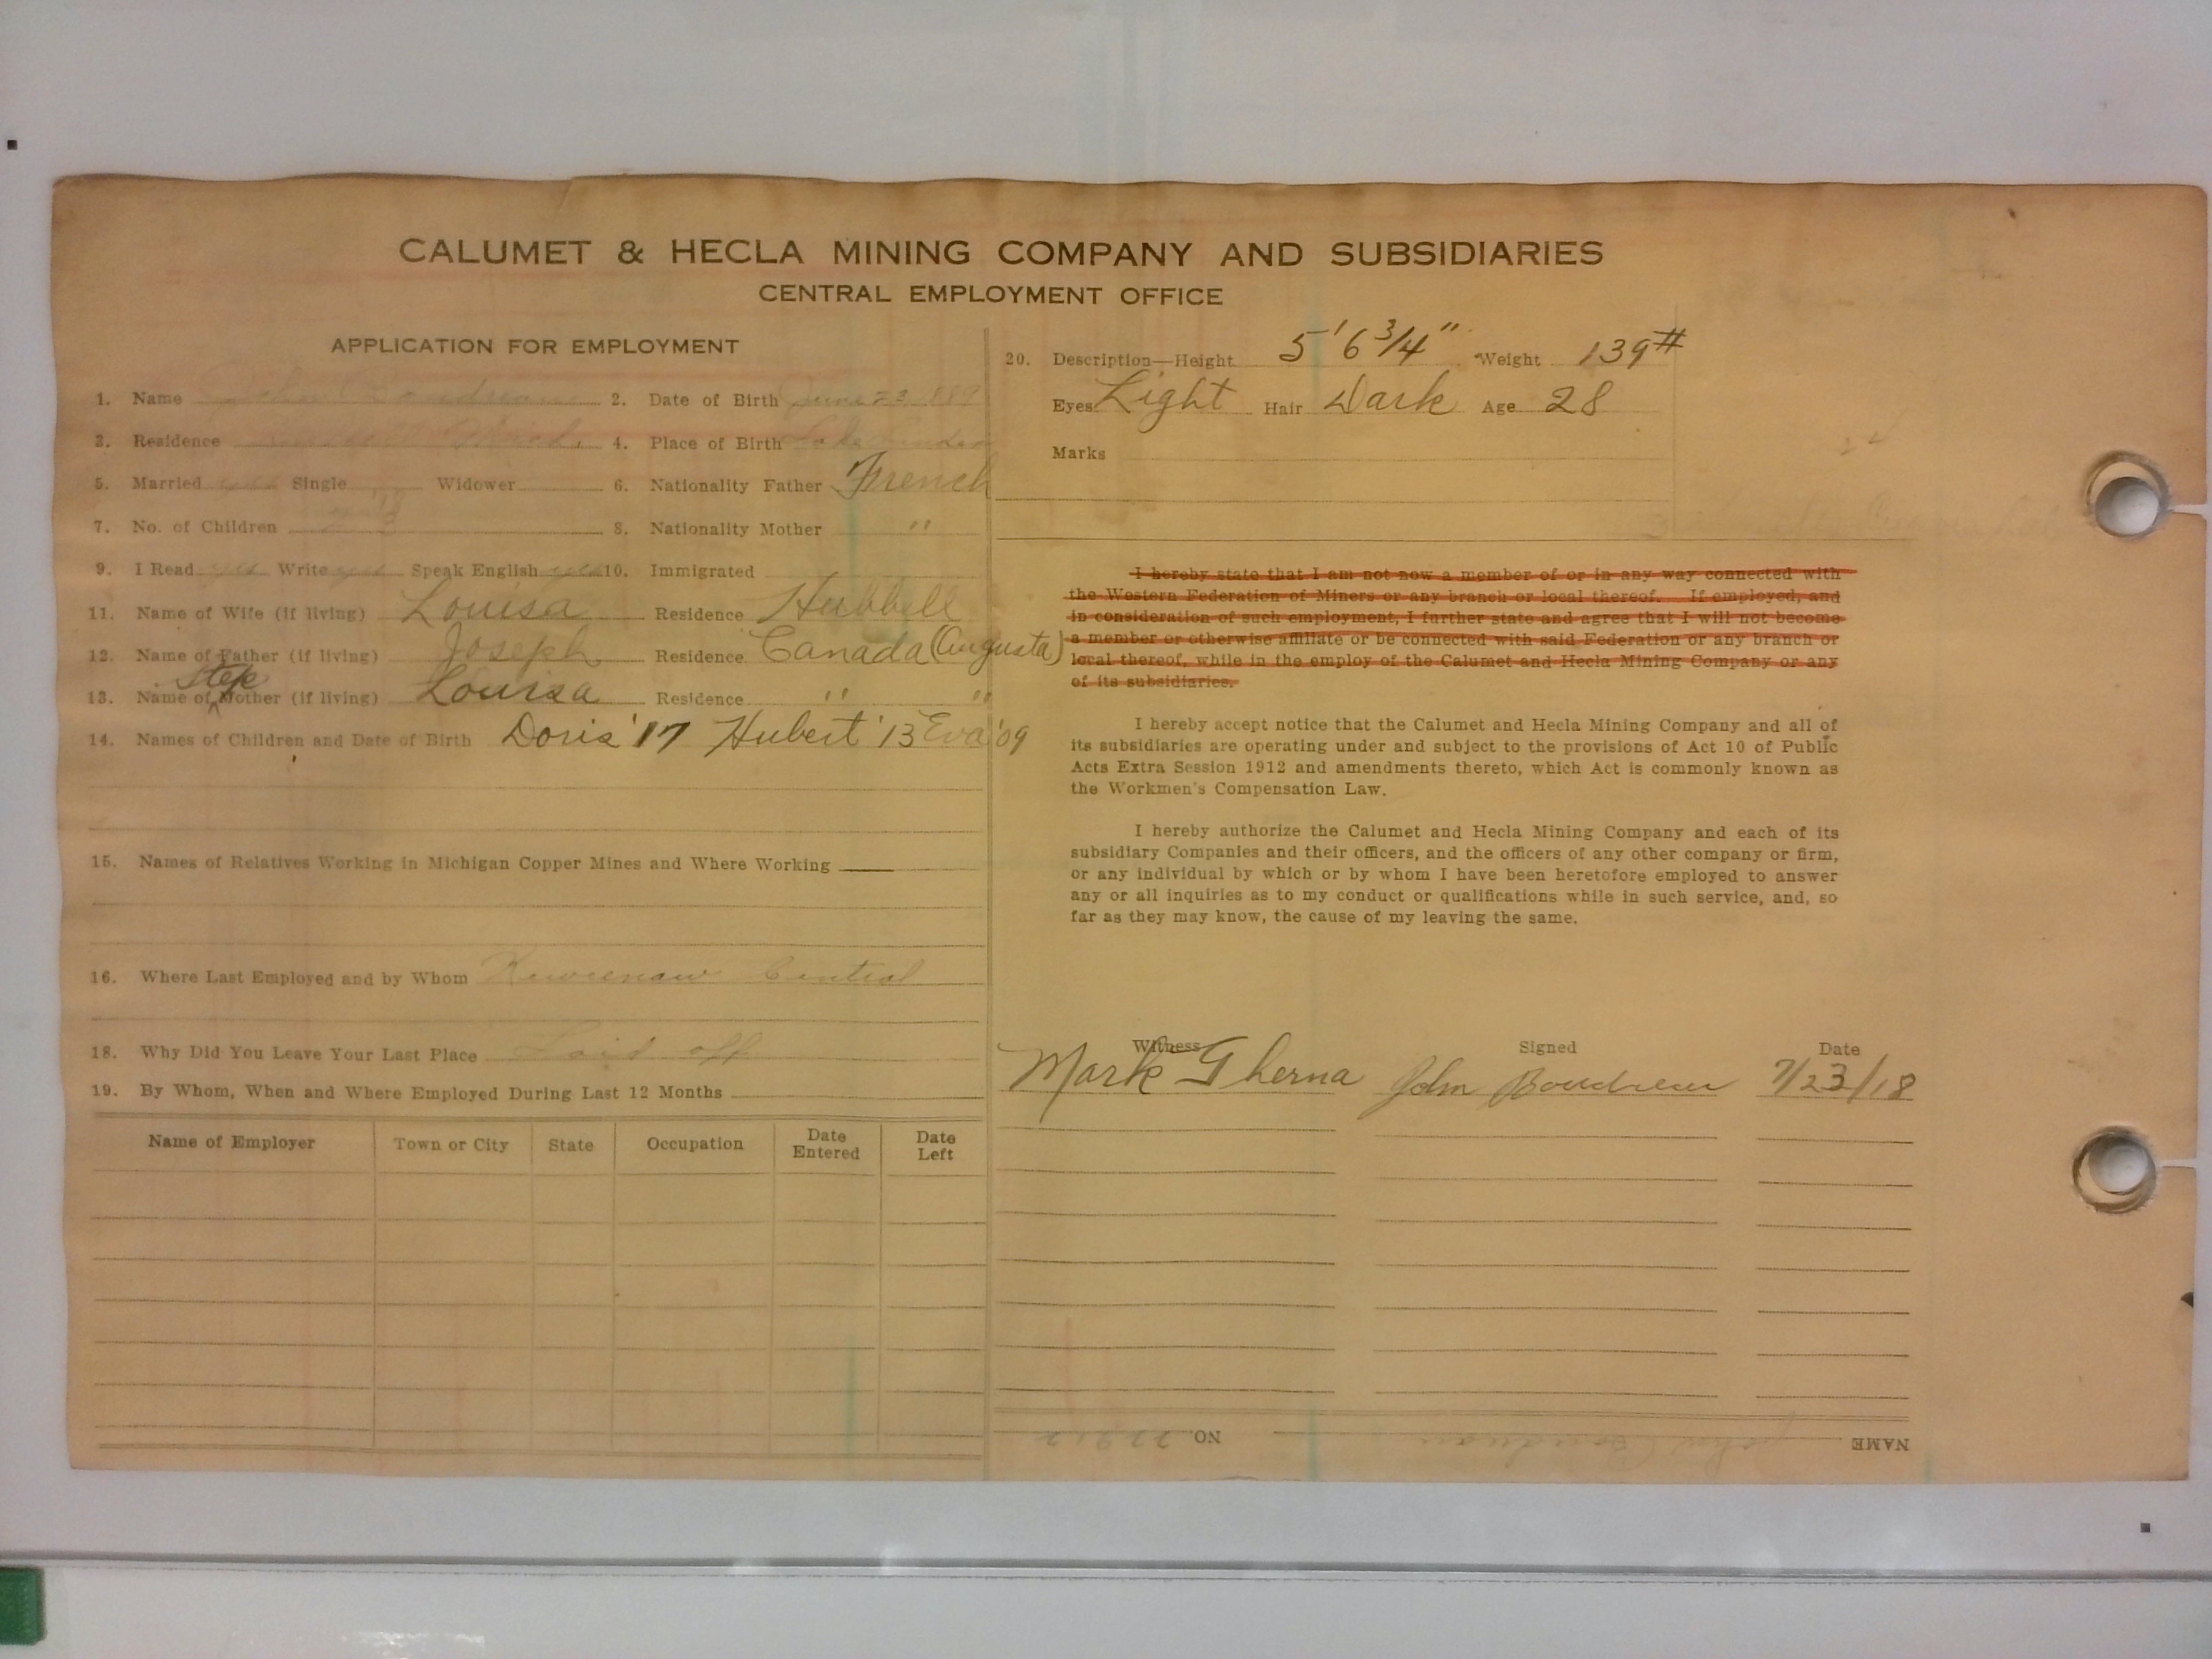 CALUMET & HECLA MINING COMPANY AND SUBSIDIARIES
CENTRAL EMPLOYMENT OFFICE
APPLICATION FOR EMPLOYMENT
1. Name John 2. Date of Birth June 23, 1889
3. Residence Mich. 4. Place of Birth Lake Linden
5. Married yes Single Widower 6. Nationality Father French
7. No. of Children 3 8. Nationality Mother "
9. I Read yes Write yes Speak English yes 10. Immigrated
11. Name of Wife (if living) Louisa Residence Hubbell
12. Name of Father (if living) Joseph Residence Canada (Augusta)
step
13. Name of Mother (if living) Louisa Residence " "
14. Names of Children and Date of Birth Doris '17 Hubert '13 Eva '09
15. Names of Relatives Working in Michigan Copper Mines and Where Working
16. Where Last Employed and by Whom Keweenaw Central
18. Why Did You Leave Your Last Place Laid off
19. By Whom, When and Where Employed During Last 12 Months
Name of Employer Town or City State Occupation Date Entered Date Left
20. Description—Height 5' 6 3/4" Weight 139#
Eyes Light Hair Dark Age 28
Marks
I hereby state that I am not now a member of or in any way connected with
the Western Federation of Miners or any branch or local thereof. If employed, and
in consideration of such employment, I further state and agree that I will not become
a member or otherwise affiliate or be connected with said Federation or any branch or
local thereof, while in the employ of the Calumet and Hecla Mining Company or any
of its subsidiaries.
I hereby accept notice that the Calumet and Hecla Mining Company and all of
its subsidiaries are operating under and subject to the provisions of Act 10 of Public
Acts Extra Session 1912 and amendments thereto, which Act is commonly known as
the Workmen's Compensation Law.
I hereby authorize the Calumet and Hecla Mining Company and each of its
subsidiary Companies and their officers, and the officers of any other company or firm,
or any individual by which or by whom I have been heretofore employed to answer
any or all inquiries as to my conduct or qualifications while in such service, and, so
far as they may know, the cause of my leaving the same.
Witness Signed Date
Mark Gherna John Boudreau 7/23/18
NAME John NO.